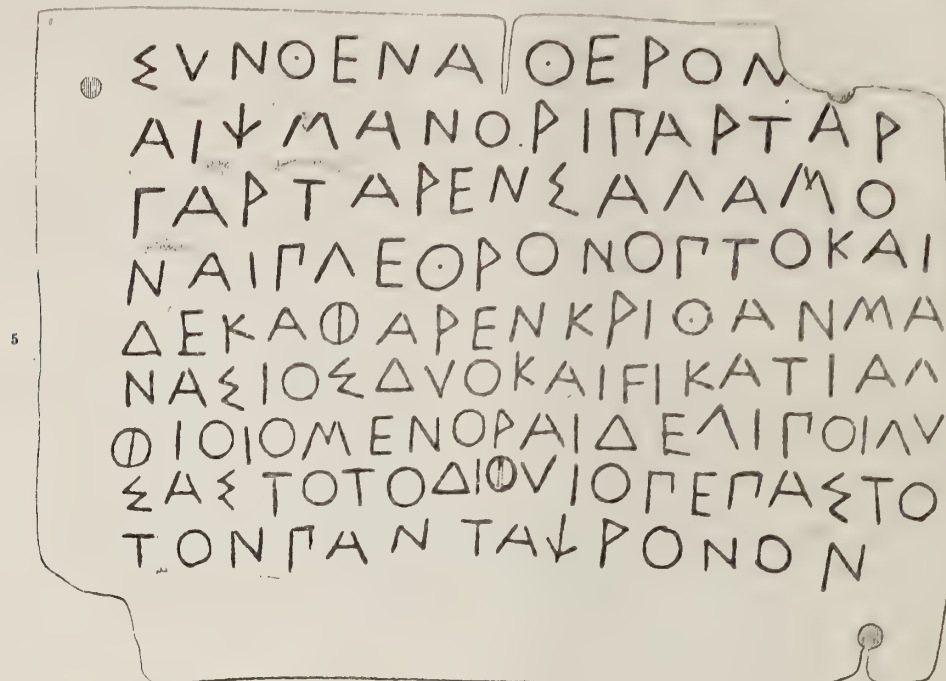 ΣΥΝΘΕΝΑ ΘΕΡΟΝ
ΑΙΨΜΑΝΟΡΙΠΑΡΤΑΡ
ΓΑΡΤΑΡΕΝΣΑΛΑΜΟ
ΝΑΙΠΛΕΘΡΟΝΟΠΤΟΚΑΙ
5 ΔΕΚΑΦΑΡΕΝΚΡΙΘΑΝΜΑ
ΝΑΣΙΟΣΔΥΟΚΑΙϜΙΚΑΤΙΑΛ
ΦΙΟΙΟΜΕΝΟΡΑΙΔΕΛΙΠΟΙΛΥ
ΣΑΣΤΟΤΟΔΙΦΥΙΟΠΕΠΑΣΤΟ
ΤΟΝΠΑΝΤΑΨΡΟΝΟΝ